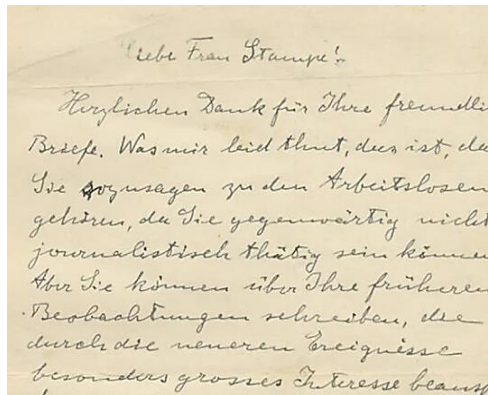 Liebe Frau Stampe!
Herzlichen Dank für Ihre freundli
Briefe. Was mir leid thut, das ist, da
Sie sozusagen zu den Arbeitslosen
gehören, da Sie gegenwärtig nicht
journalistisch thätig sein können
Aber Sie können über Ihre früheren
Beobachtungen schreiben, die
durch die neueren Ereignisse
besonders grosses Interesse beansp